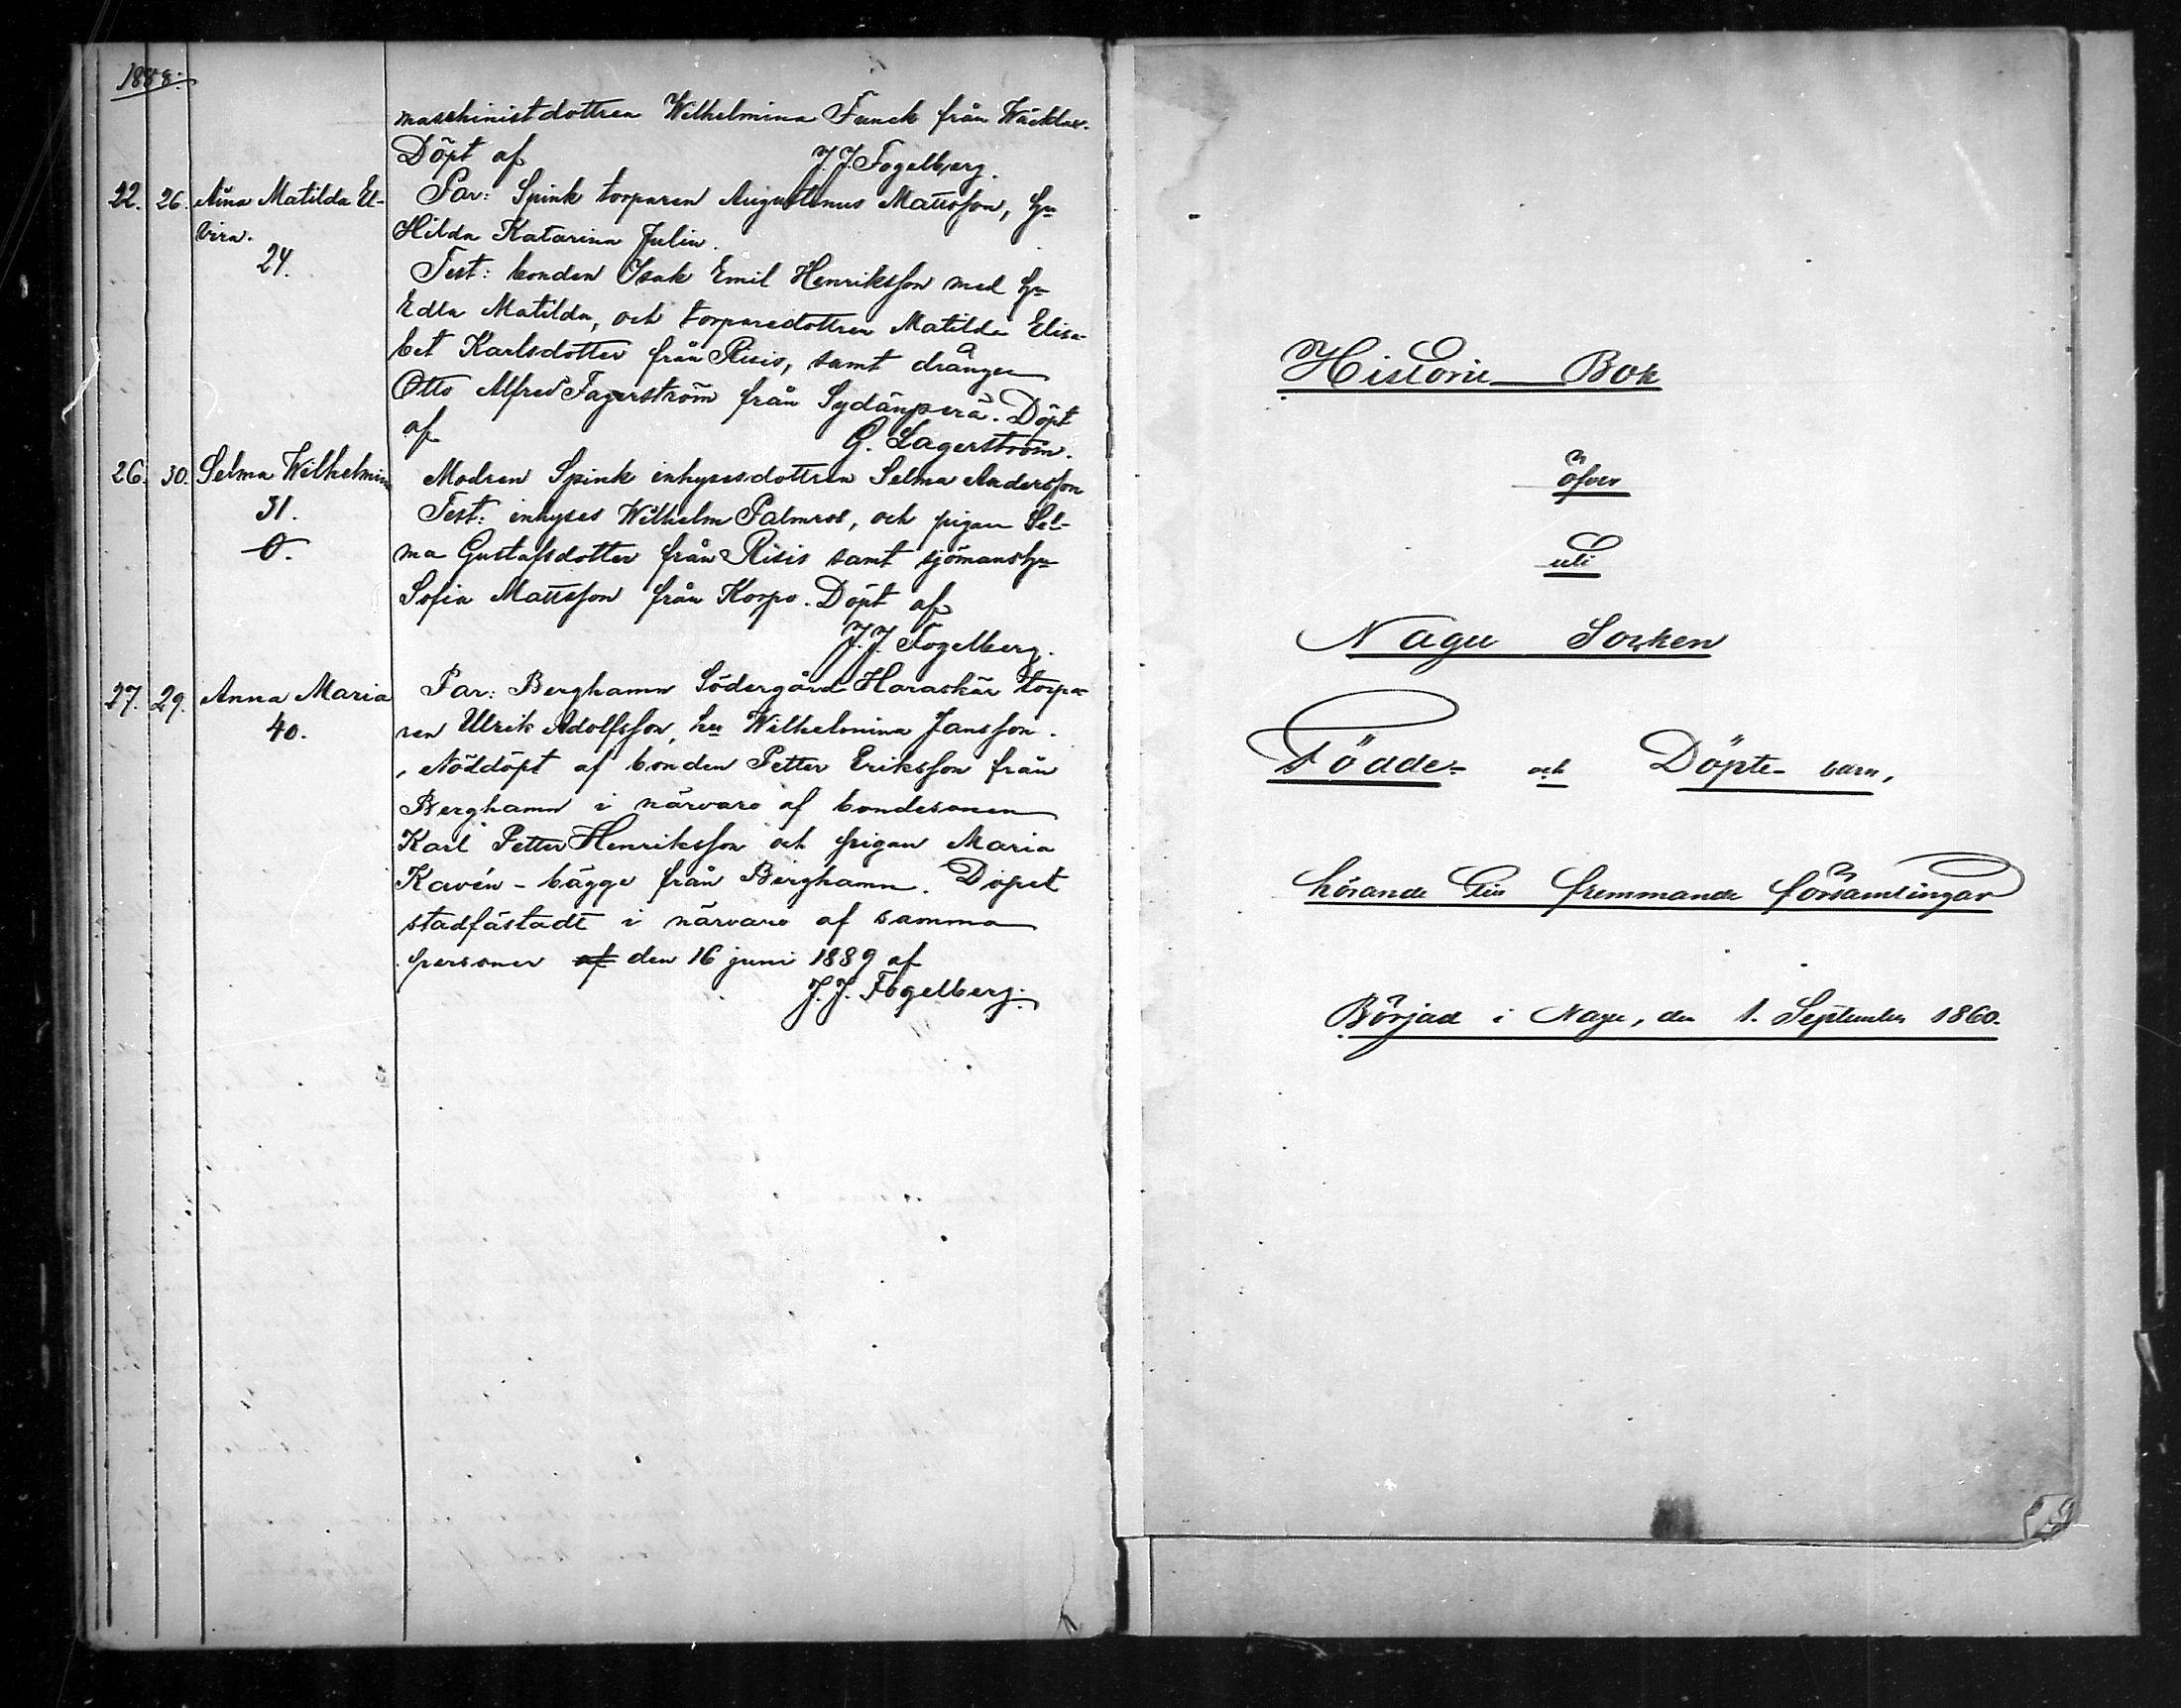 1888.
maschinistdottren Wilhelmina Funck från Wäcklax.
Döpt af J.J. Fogelberg.
22. 26. Nina Matilda El-
vira.
24.
Par: Spink torparen Augustinus Mattsson, hu
Hilda Katarina Julin.
Test: bonden Isak Emil Henriksson med hu
Edla Matilda, och torparedottren Matilda Elisa-
bet Karlsdotter från Risis, samt drängen
Otto Alfred Fagerström från Sydänperä. Döpt
af G. Lagerström.
26. 30. Selma Wilhelmina
31.
O.
Modren Spink inhysesdottren Selma Andersson
Test: inhyses Wilhelm Palmros, och pigan Sel-
ma Gustafsdotter från Risis samt sjömanshu
Sofia Mattsson från Korpo. Döpt af
J.J. Fogelberg.
27. 29. Anna Maria
40.
Par: Berghamn Södergård Haraskär torpa-
ren Ulrik Adolfsson, hu Wilhelmina Jansson.
Nöddöpt af bonden Petter Eriksson från
Berghamn i närvaro af bondesonen
Karl Petter Henriksson och pigan Maria
Kavén - bägge från Berghamn. Dopet
stadfästadt i närvaro af samma
personer af den 16 juni 1889 af
J.J. Fogelberg.
Historie Bok
öfver
uti
Nagu Socken
Födde- och Döpte- barn,
hörande till fremmande församlingar
Börjad i Nagu, den 1. September 1860.